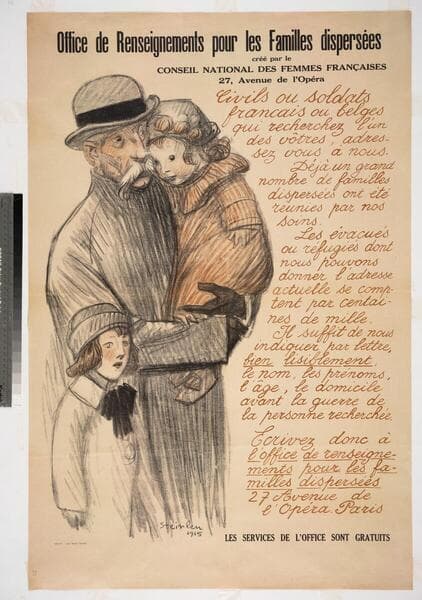 Office de Renseignements pour les Familles dispersées
créé par le
CONSEIL NATIONAL DES FEMMES FRANÇAISES
27, Avenue de l'Opéra
Civils ou soldats
français ou belges
qui recherchez l'un
des vôtres, adres-
sez vous a nous.
Déjà un grand
nombre de familles
dispersées ont été
réunies par nos
soins.
Les évacués
ou réfugiés dont
nous pouvons
donner l'adresse
actuelle se comp-
tent par centai-
nes de mille.
Il suffit de nous
indiquer par lettre,
bien lisiblement
le nom, les prénoms,
l'âge, le domicile
avant la guerre de
la personne recherchée.
Ecrivez donc à
l'office de renseigne-
ments pour les fa-
milles dispersées
27 Avenue de
l'Opéra. Paris
Steinlen
1915
LES SERVICES DE L'OFFICE SONT GRATUITS